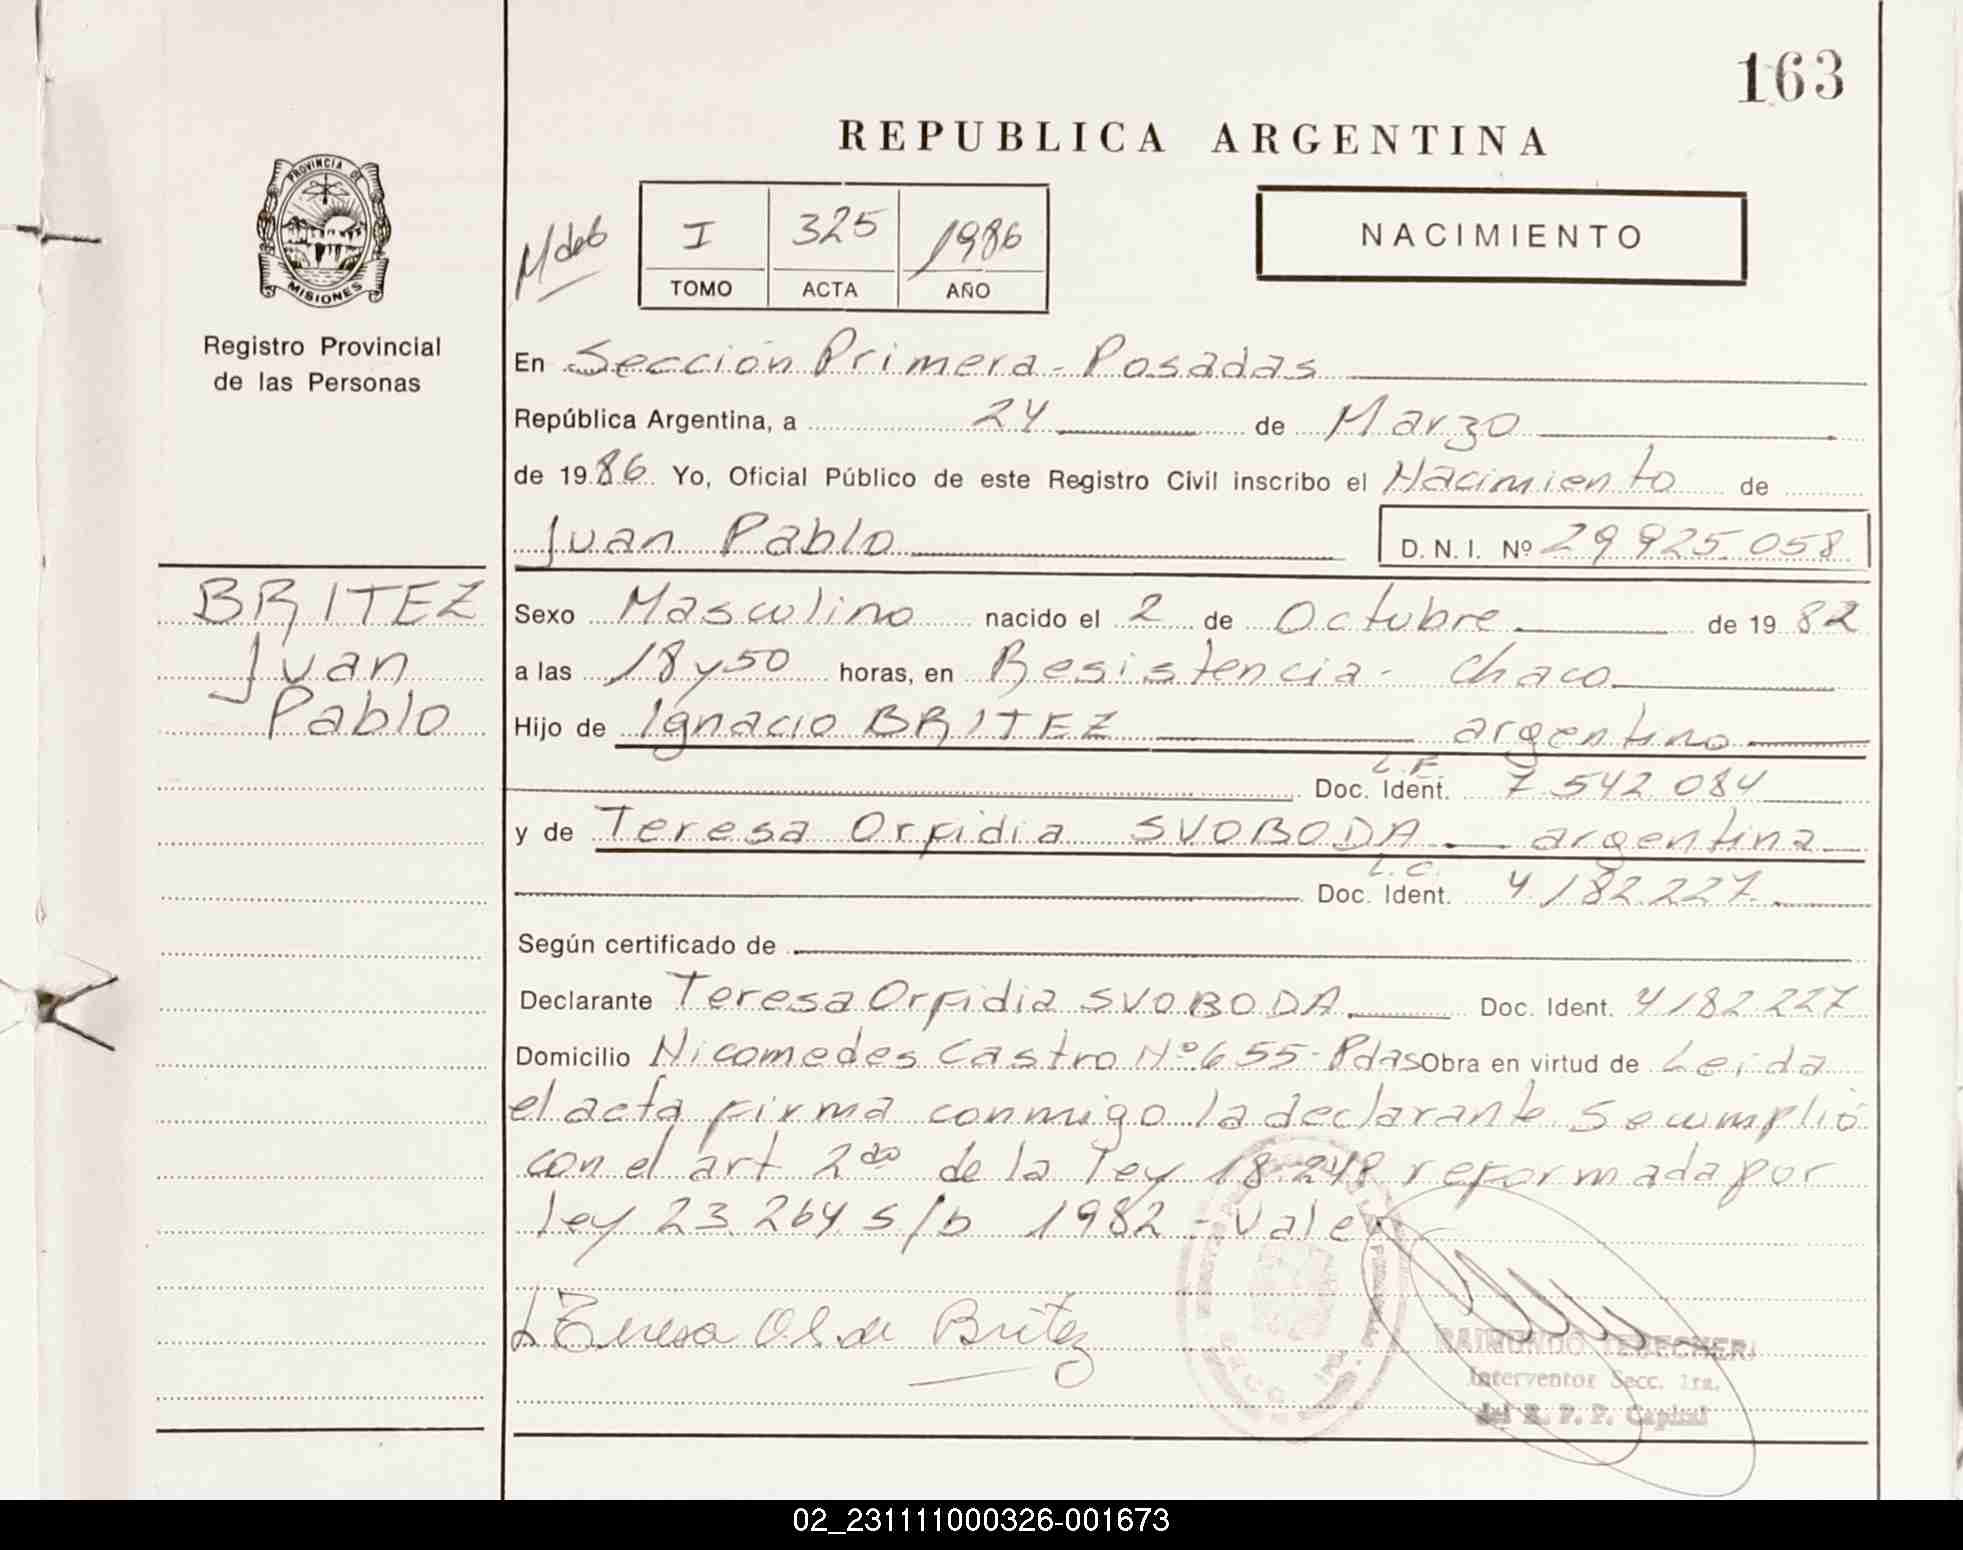 163
REPUBLICA ARGENTINA
PROVINCIA DE
MISIONES
Registro Provincial
de las Personas
I 325 1986
TOMO ACTA AÑO
NACIMIENTO
En Sección Primera - Posadas
República Argentina, a 24 de Marzo
de 1986 Yo, Oficial Público de este Registro Civil inscribo el Nacimiento de
Juan Pablo D.N.I. Nº 29 925 058
BRITEZ
Juan
Pablo
Sexo Masculino nacido el 2 de Octubre de 1982
a las 18 y 50 horas, en Resistencia - Chaco
Hijo de Ignacio BRITEZ argentino
L.E.
Doc. Ident. 7.542 084
y de Teresa Orfidia SVOBODA argentina
L.C.
Doc. Ident. 4.182.227
Según certificado de
Declarante Teresa Orfidia SVOBODA Doc. Ident. 4.182.227
Domicilio Nicomedes Castro Nº 655 - Pdas Obra en virtud de Leida
el acta firma conmigo la declarante Se cumplió
con el art 2do de la ley 18.248 reformada por
ley 23.264 s/b 1982 - Vale
Teresa O.S. de Britez
Interventor Secc. 1ra.
del R. P. P. Capital
02_231111000326-001673